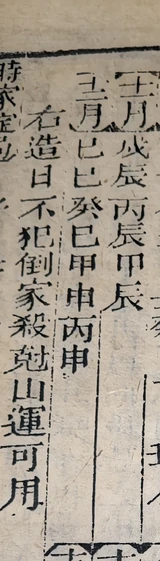 【十一月】戊辰丙辰甲辰
【十二月】己巳癸巳甲申丙申
右造日不犯倒家殺尅山運可用
時家